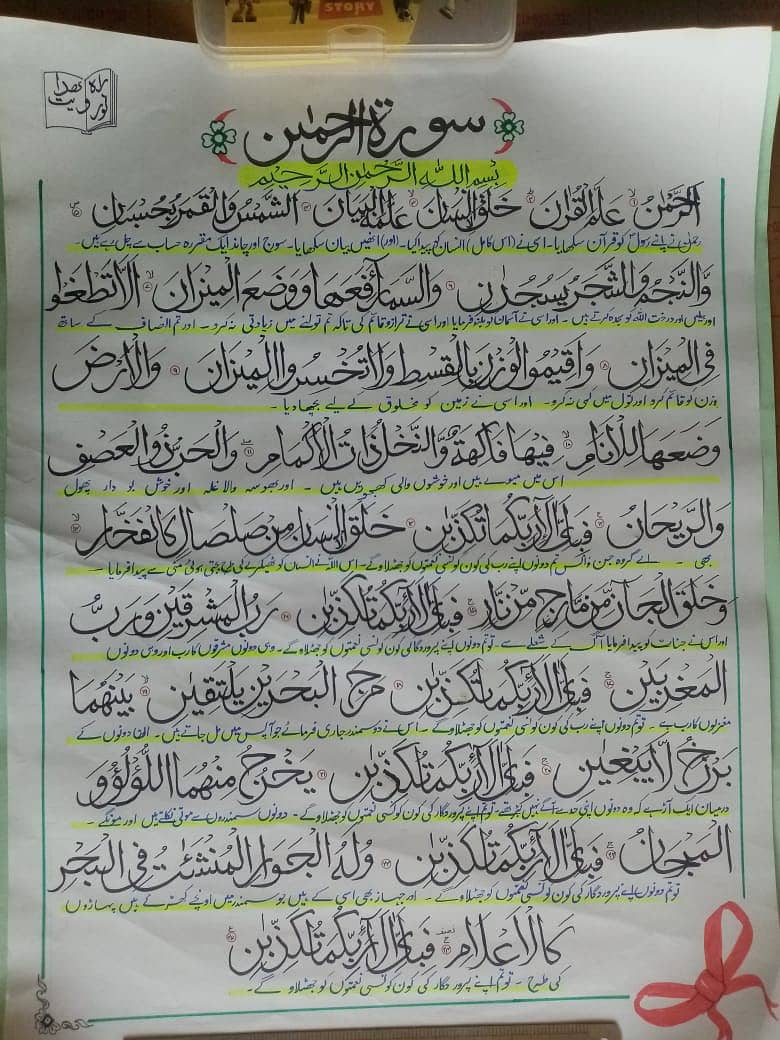 STORY
راہ ھدا
نور ویت
سورة الرحمٰن
بسم الله الرحمن الرحيم
الرَّحْمٰنُ ۱ عَلَّمَ الْقُرْاٰنَ ۲ خَلَقَ الْاِنْسَانَ ۳ عَلَّمَهُ الْبَيَانَ ۴ الشَّمْسُ وَالْقَمَرُ بِحُسْبَانٍ ۵
رحمٰن نے اپنے رسول کو قرآن سکھایا۔ اسی نے (اس کامل) انسان کو پیدا کیا۔ (اور) انھیں بیان سکھایا۔ سورج اور چاند ایک مقررہ حساب سے چل رہے ہیں۔
وَّالنَّجْمُ وَالشَّجَرُ يَسْجُدٰنِ ۶ وَالسَّمَآءَ رَفَعَهَا وَوَضَعَ الْمِيْزَانَ ۷ اَلَّا تَطْغَوْا
اور بیلیں اور درخت اللہ کو سجدہ کرتے ہیں۔ اور اسی نے آسمان کو بلند فرمایا اور اسی نے ترازو قائم کی تاکہ تم تولنے میں زیادتی نہ کرو۔ اور تم انصاف کے ساتھ
فِى الْمِيْزَانِ ۸ وَاَقِيْمُوا الْوَزْنَ بِالْقِسْطِ وَلَا تُخْسِرُوا الْمِيْزَانَ ۹ وَالْاَرْضَ
وزن کو قائم کرو اور تول میں کمی نہ کرو۔ اور اسی نے زمین کو مخلوق کے لیے بچھا دیا۔
وَضَعَهَا لِلْاَنَامِ ۱۰ فِيْهَا فَاكِهَةٌ وَّالنَّخْلُ ذَاتُ الْاَكْمَامِ ۱۱ وَالْحَبُّ ذُو الْعَصْفِ
اس میں میوے ہیں اور خوشوں والی کھجوریں ہیں۔ اور بھوسہ والا غلہ اور خوش بو دار پھول
وَالرَّيْحَانُ ۱۲ فَبِاَىِّ اٰلَآءِ رَبِّكُمَا تُكَذِّبٰنِ ۱۳ خَلَقَ الْاِنْسَانَ مِنْ صَلْصَالٍ كَالْفَخَّارِ ۱۴
بھی۔ اے گروہ جن و انس تم دونوں اپنے رب کی کون کونسی نعمتوں کو جھٹلاوگے۔ اس اللہ نے انسان کو ٹھیکرے کی طرح بجتی ہوئی مٹی سے پیدا فرمایا۔
وَخَلَقَ الْجَآنَّ مِنْ مَّارِجٍ مِّنْ نَّارٍ ۱۵ فَبِاَىِّ اٰلَآءِ رَبِّكُمَا تُكَذِّبٰنِ ۱۶ رَبُّ الْمَشْرِقَيْنِ وَرَبُّ
اور اس نے جنات کو پیدا فرمایا آگ کے شعلے سے۔ تو تم دونوں اپنے پروردگار کی کون کونسی نعمتوں کو جھٹلاو گے۔ وہی دونوں مشرقوں کا رب اور وہی دونوں
الْمَغْرِبَيْنِ ۱۷ فَبِاَىِّ اٰلَآءِ رَبِّكُمَا تُكَذِّبٰنِ ۱۸ مَرَجَ الْبَحْرَيْنِ يَلْتَقِيٰنِ ۱۹ بَيْنَهُمَا
مغربوں کا رب ہے۔ تو تم دونوں اپنے رب کی کون کونسی نعمتوں کو جھٹلاو گے۔ اس نے دو سمندر جاری فرمائے جو آپس میں مل جاتے ہیں۔ ان دونوں کے
بَرْزَخٌ لَّا يَبْغِيٰنِ ۲۰ فَبِاَىِّ اٰلَآءِ رَبِّكُمَا تُكَذِّبٰنِ ۲۱ يَخْرُجُ مِنْهُمَا اللُّؤْلُؤُ وَ
درمیان ایک آڑ ہے کہ وہ دونوں اپنی حد سے آگے نہیں بڑھتے۔ تو تم اپنے پروردگار کی کون کونسی نعمتوں کو جھٹلاو گے۔ دونوں سمندروں سے موتی نکلتے ہیں اور مونگے۔
الْمَرْجَانُ ۲۲ فَبِاَىِّ اٰلَآءِ رَبِّكُمَا تُكَذِّبٰنِ ۲۳ وَلَهُ الْجَوَارِ الْمُنْشَئٰتُ فِى الْبَحْرِ
تو تم دونوں اپنے پروردگار کی کون کونسی نعمتوں کو جھٹلاو گے۔ اور جہاز بھی اسی کے ہیں جو سمندر میں اونچے کھڑے ہیں پہاڑوں
كَالْاَعْلَامِ ۲۴ فَبِاَىِّ اٰلَآءِ رَبِّكُمَا تُكَذِّبٰنِ ۲۵
کی طرح۔ تو تم اپنے پروردگار کی کون کونسی نعمتوں کو جھٹلاو گے۔